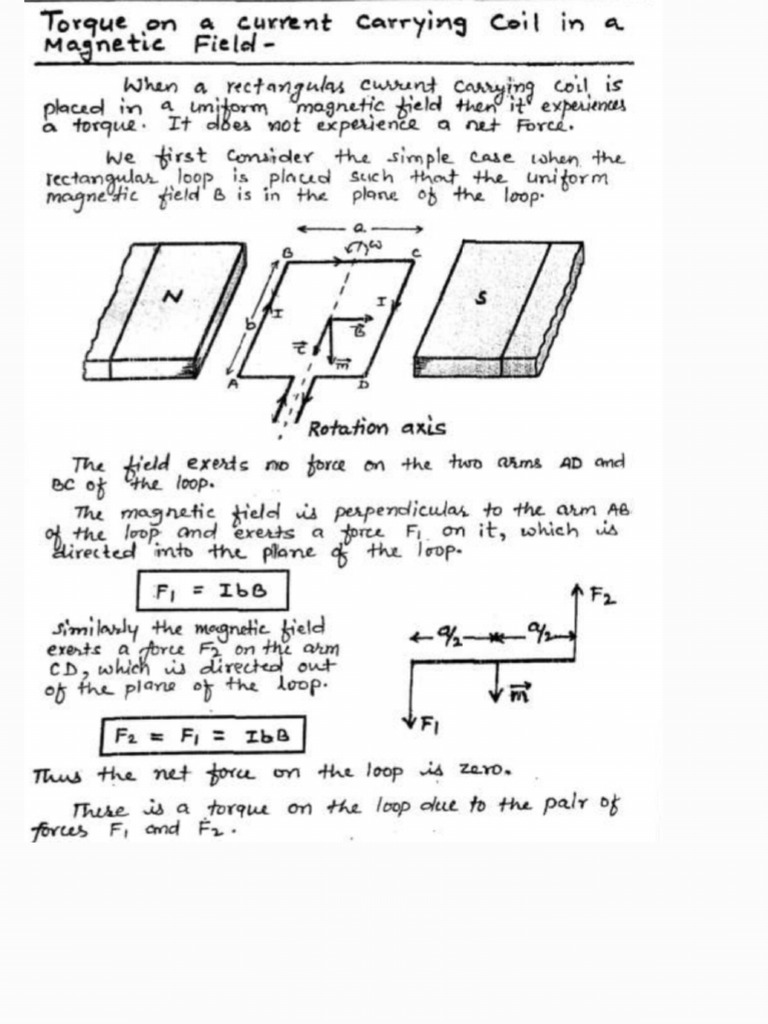 Torque on a current Carrying Coil in a
Magnetic Field -
When a rectangular current carrying coil is
placed in a uniform magnetic field then it experiences
a torque. It does not experience a net Force.
We first Consider the simple case when the
rectangular loop is placed such that the uniform
magnetic field B is in the plane of the loop.
a
B
ω
C
N
S
b
I
I
B
τ
m
A
D
Rotation axis
The field exerts no force on the two arms AD and
BC of the loop.
The magnetic field is perpendicular to the arm AB
of the loop and exerts a force F1 on it, which is
directed into the plane of the loop.
F1 = IbB
F2
Similarly the magnetic field
exerts a force F2 on the arm
CD, which is directed out
of the plane of the loop.
a/2
a/2
m
F1
F2 = F1 = IbB
Thus the net force on the loop is zero.
There is a torque on the loop due to the pair of
forces F1 and F2.